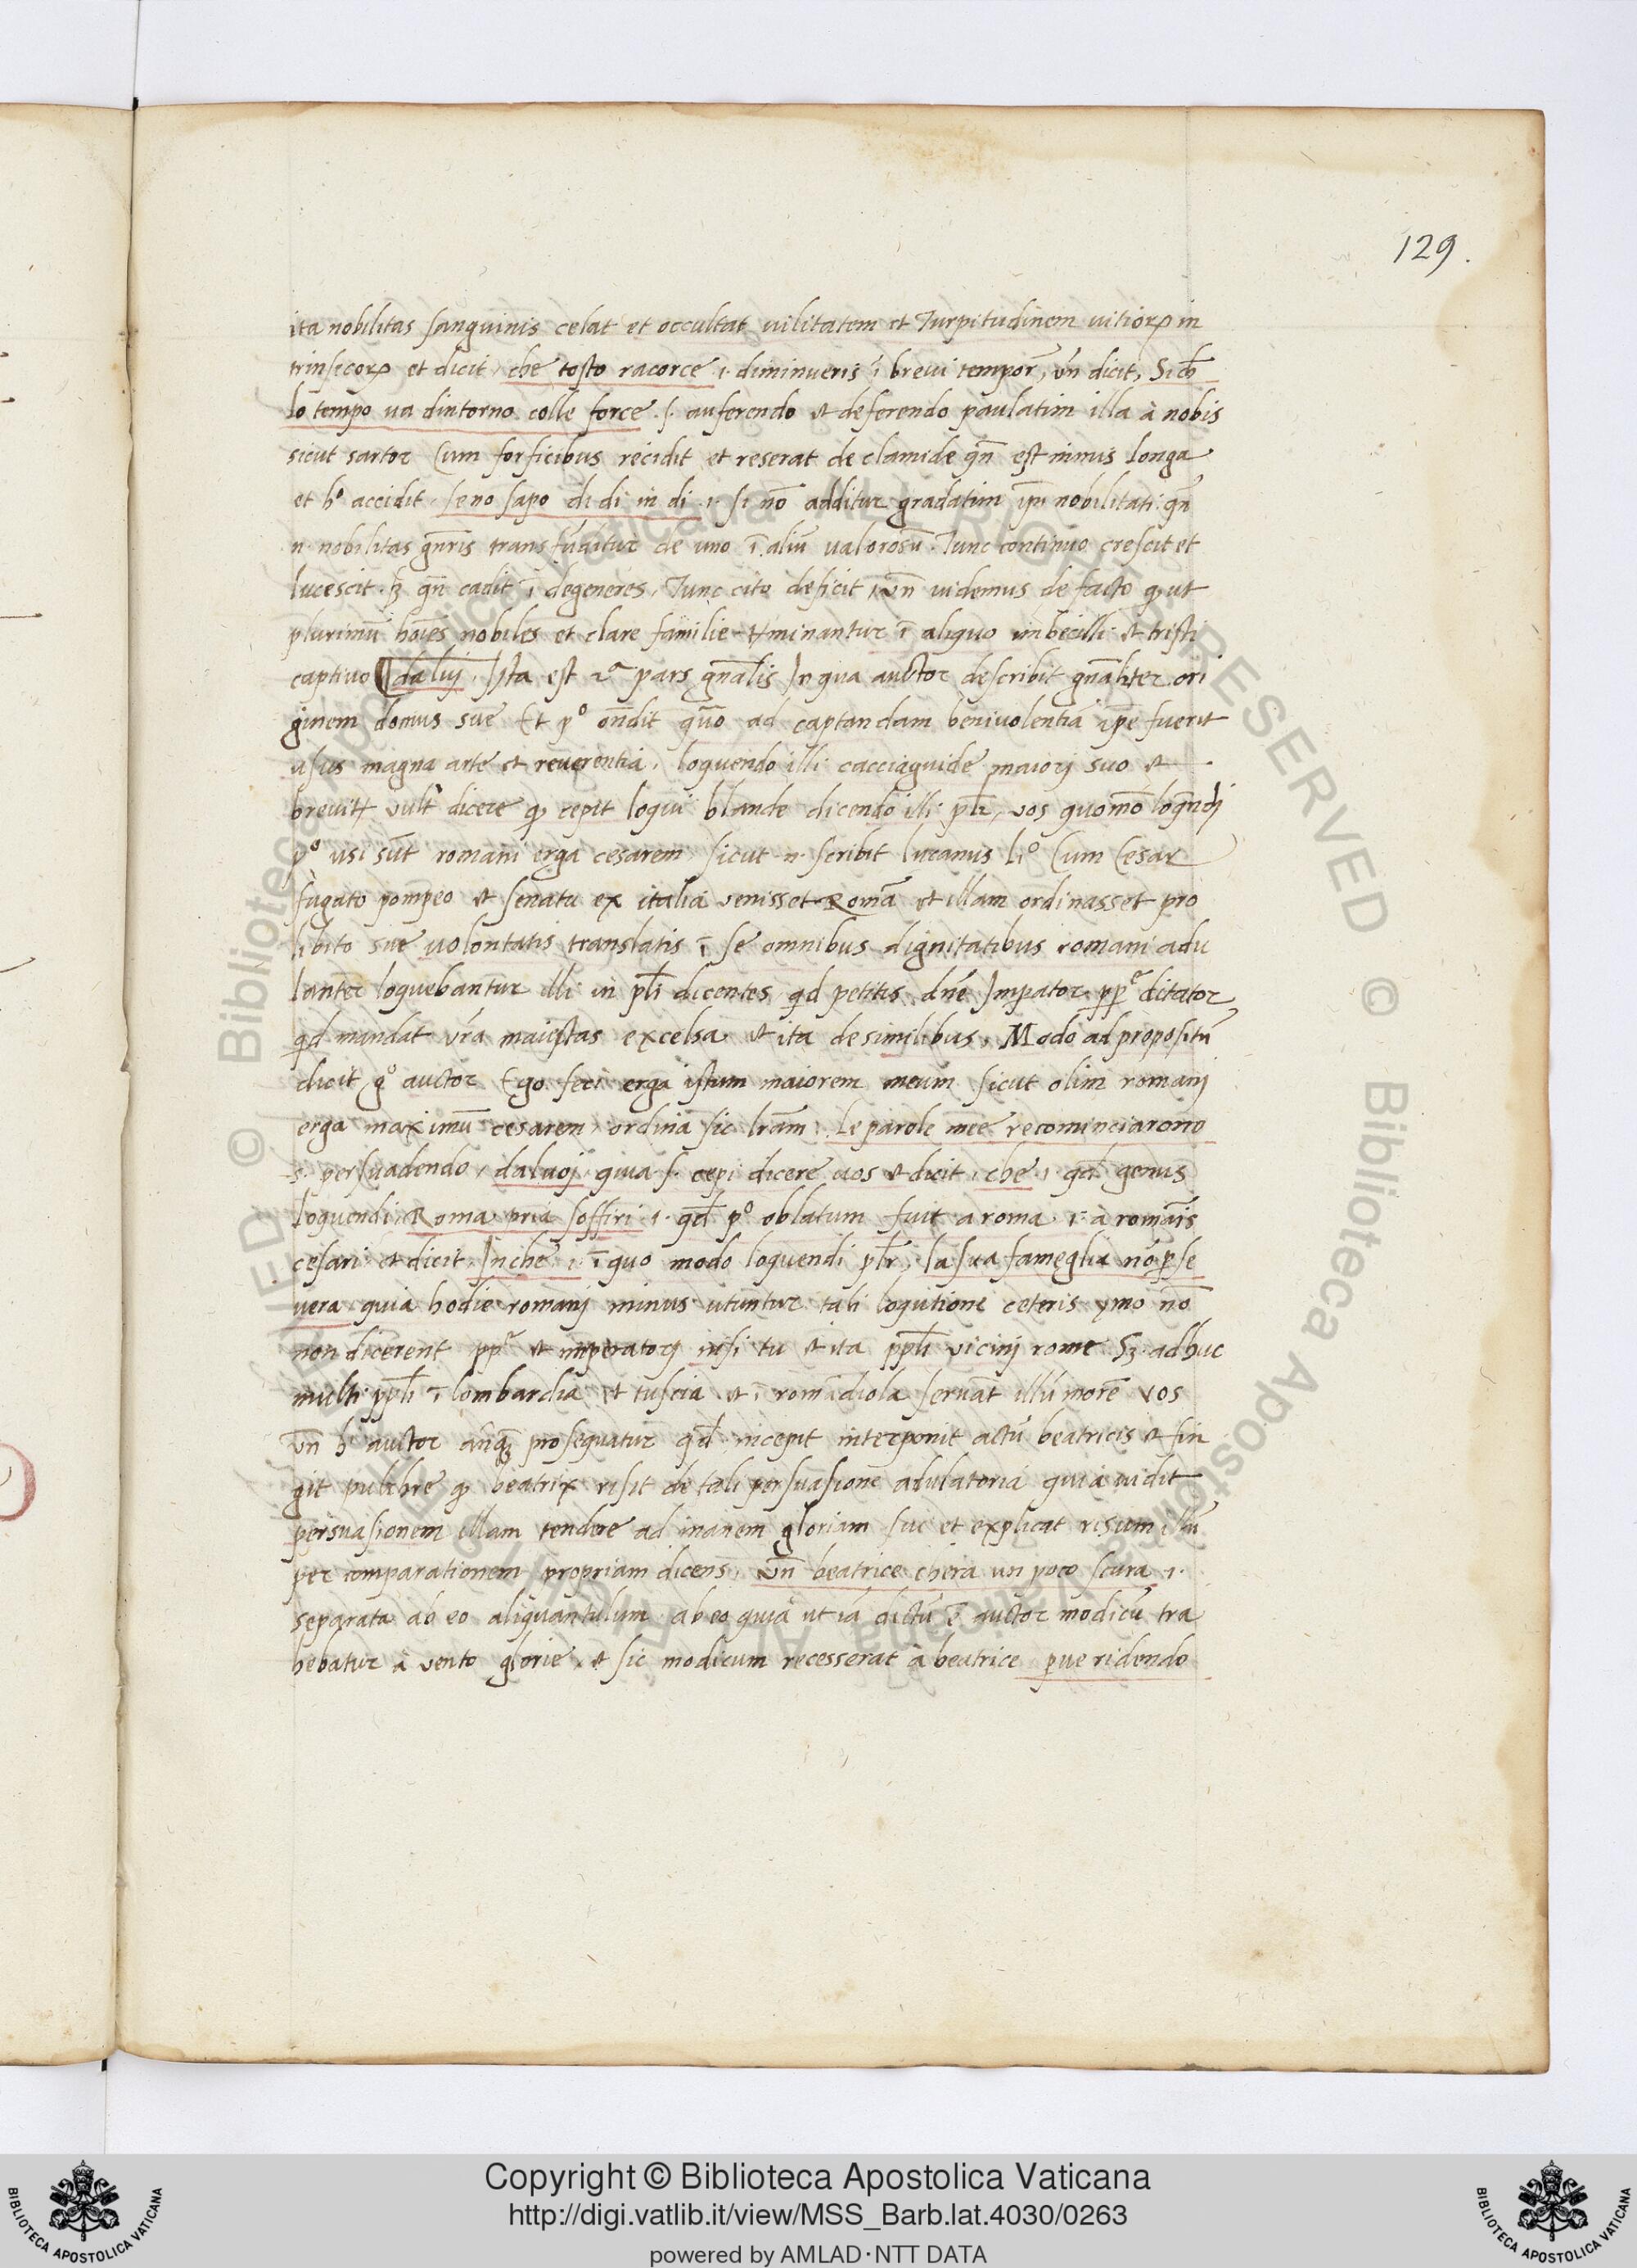 129.
ita nobilitas sanguinis celat et occultat uilitatem et Turpitudinem uitioꝝ in
trinsicoꝝ et dicit, che tosto racorce .i. diminueris ī breui tempor̄, vn̄ dicit, Si ch̄
lo tempo ua dintorno colle force .s. auferendo et deferendo paulatim illa à nobis
sicut sartor Cum forficibus recidit et reserat de clamide qn̄ est nimis longa
et h° accidit, se no sapo di di in di .i. si nō additur gradatim ip̄i nobilitati qn̄
.n. nobilitas gn̄ris transfūditur de uno ī aliū ualorosū. Tunc continuo crescit et
lucescit. sꝫ qn̄ cadit ī degeneres, Tunc cito deficit, vn̄ uidemus de facto ꝙ ut
plurimū hoīes nobiles et clare familie tminantur ī aliquo imbecilli et tristi
captiuo dal uj. Ista est 2ᵃ pars gnālis In qua auctor describit gnāliter ori
ginem domus sue Et p° ondīt quō ad captandam beniuolentiā ip̄e fuerit
usus magna arte et reuerentia, loquendo illi cacciaguide maiorj suo et
breuit vult dicere ꝙ cepit loqui blande dicendo illi plr̄, vos quomō loqn̄dj
p° usi sūt romani erga cesarem sicut .n. scribit lucanus li° Cum Cesar
fugato pompeo et senatu ex italia venisset Romā et illam ordinasset pro
libito sue uolontatis translatis ī se omnibus dignitatibus romani adu
lanter loquebantur illi in pli dicentes qd petitis dn̄e Impator ppᵉ dictator
qd mandat vrā maiestas excelsa et ita de similibus, Modo ad propositū
dicit g° auctor Ego feci erga istum maiorem meum sicut olim romanj
erga maximū cesarem, ordina sic lrām. Le parole mee recominciarono
s. persuadendo, dal uoj quia s. cepi dicere uos et dicit, che .i. qd genus
loquendi Roma pria soffiri .i. qd p° oblatum fuit a roma .i. à romāis
cesari et dicit, In che .i. ī quo modo loquendi plr̄, la sua fameglia nō ꝑse
uera quia hodie romanj minus utuntur tali loqutione ceteris ymo nō
non dicerent ppᵉ et imperatorj nisi tu et ita ppli vicinj rome Sꝫ adhuc
multi ppli ī lombardia et tuscia et ī romādiola seruāt illū morē vos
vn̄ h auctor anqꝫ prosequatur qd incepit interponit actū beatricis et fin
git pulchre ꝙ beatrix risit de tali persuasione adulatoria quia uidit
persuasionem illam tendere ad inanem gloriam sue et explicat risum illū
per comparationem propriam dicens, vn̄ beatrice chera un poco scura .i.
separata ab eo aliquantulum ab eo quia ut iā dictū ē auctor modicū tra
hebatur à vento glorie, et sic modicum recesserat à beatrice ꝑue ridendo
© Biblioteca Apostolica Vaticana ALL RIGHTS RESERVED © Biblioteca Apostolica Vaticana ALL RIGHTS RESERVED
Copyright © Biblioteca Apostolica Vaticana
http://digi.vatlib.it/view/MSS_Barb.lat.4030/0263
powered by AMLAD·NTT DATA
BIBLIOTECA APOSTOLICA VATICANA
BIBLIOTECA APOSTOLICA VATICANA